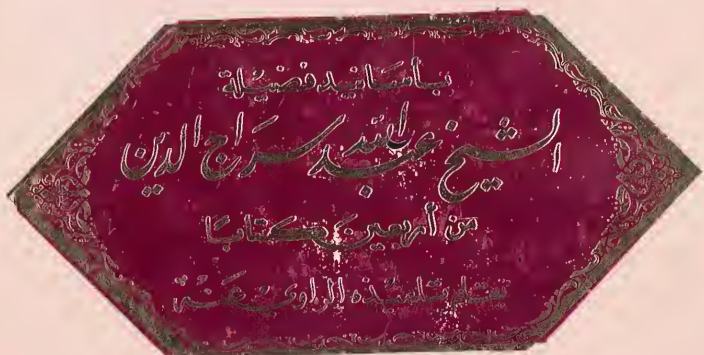 بأسانيد فضيلة
الشيخ عبد الله سراج الدين
من أربعين كتابا
بقلم تلميذه الراوي عنه